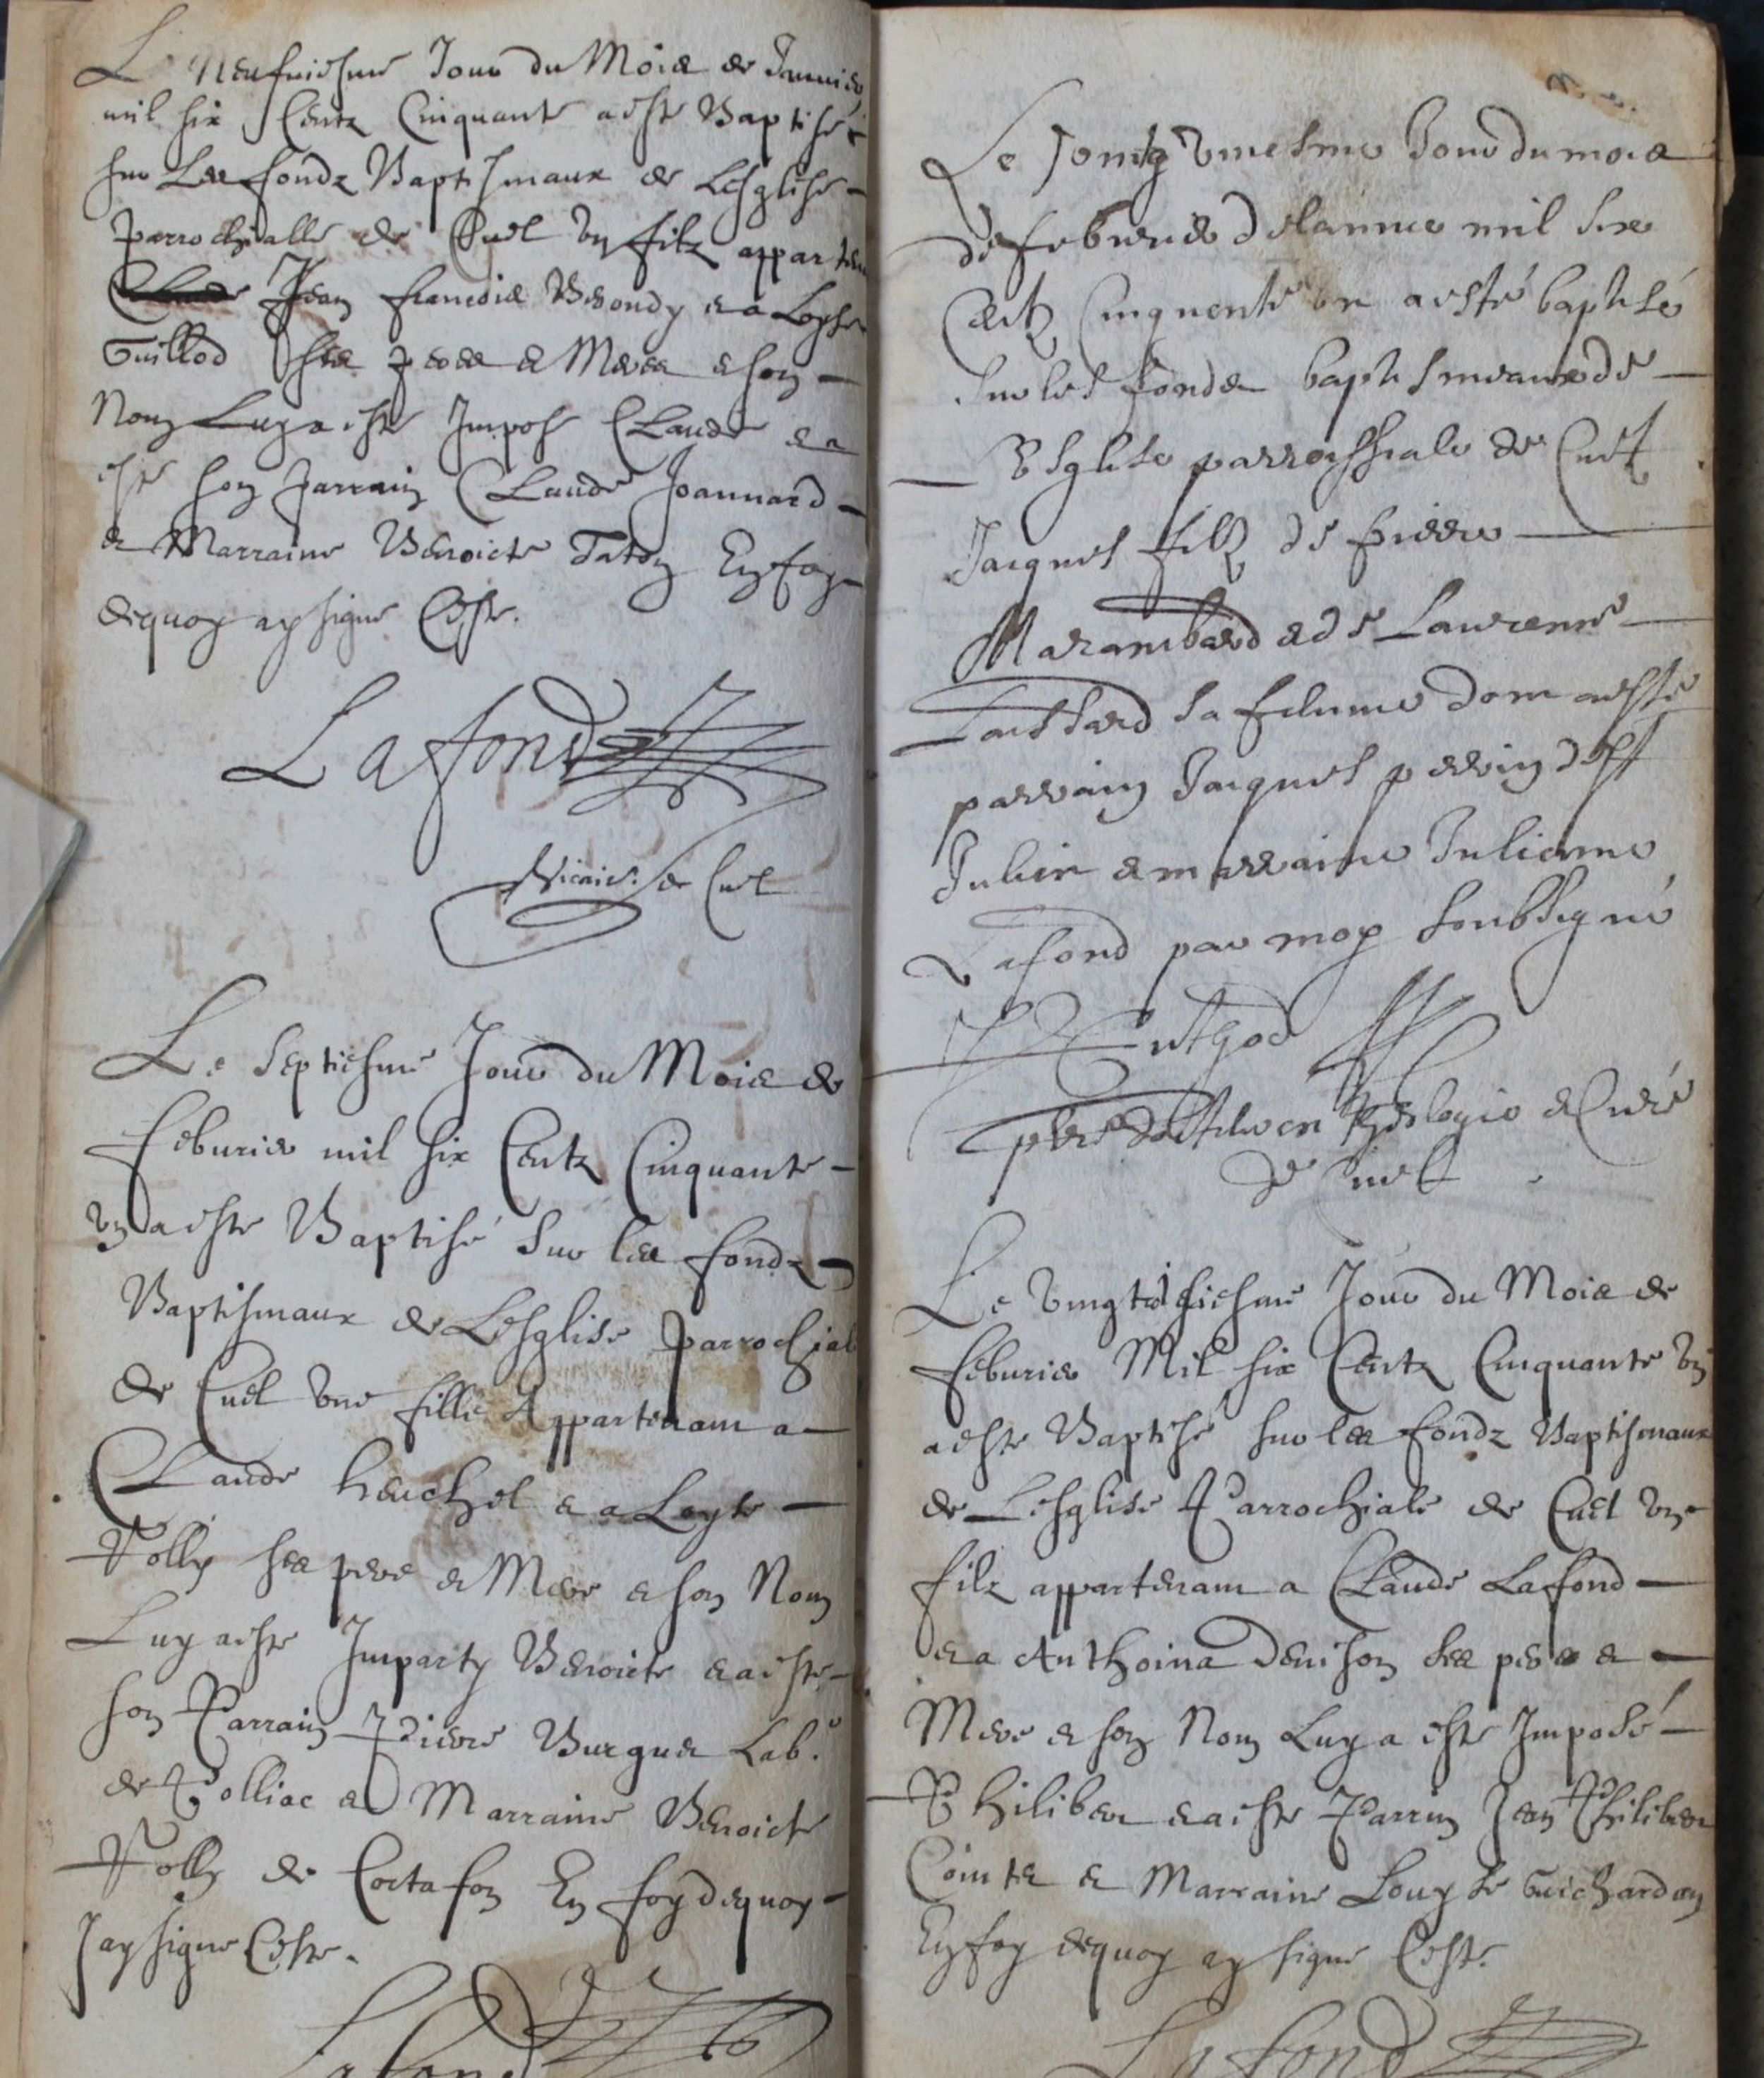 Le Neufuiesme Jour du Mois de Januier
mil six Centz Cinquante a este Baptisé
sur Les fondz Baptismaux de Lesglise
parrochialle de Cuel vn filz apparten
Jean francois Beondy et a Loyse
Guillod ses peres et Meres et son
Nom Luy a este Impose Claude et a
este son parrain Claude Joannard
et Marraine Benoicte Taton En foy
dequoy ay signe Ceste.
Lafond
Vicaire de Cuel
Le Septiesme Jour du Mois de
feburier mil six Centz Cinquante
vn a este Baptisé sur les fondz
Baptismaux de Lesglise parrochial
de Cuel vne fille Appartenant a
Claude heuchel et a Loyse
Polly ses pere et Mere et son Nom
Luy a este Imparty Benoicte et a este
son Parrain Pierre Burgue Lab.
de Polliac et Marraine Benoicte
Polly de Cortafon En foy dequoy
Jay signe Ceste.
Lafond
Le vmesme Jour du mois
de febvrier de lannee mil six
Centz Cinquente vn a esté baptisé
sur les fonds baptismeaux de
Esglise parroissiale de Cuet
Jacques filz de pierre
Marambard et de Laurence
sa femme dont a esté
parrain Jacques perrin de St
Julien et marraine Julienne
Lafond par moy soubsigné
pbre docteur en theologie et Curé
de Cuet
Le vingt sixiesme Jour du Mois de
feburier Mil six Centz Cinquante vn
a este Baptisé sur les fondz Baptismaux
de Lesglise Parrochiale de Cuel vn
filz appartenant a Claude Lafond
et a Anthoina Denison ses peres et
Mere et son Nom Luy a este Imposé
Philibert et a este Parrin Jean Philibert
Cointe et Marraine Louyse Guichardon
En foy dequoy ay signe Ceste.
Lafond